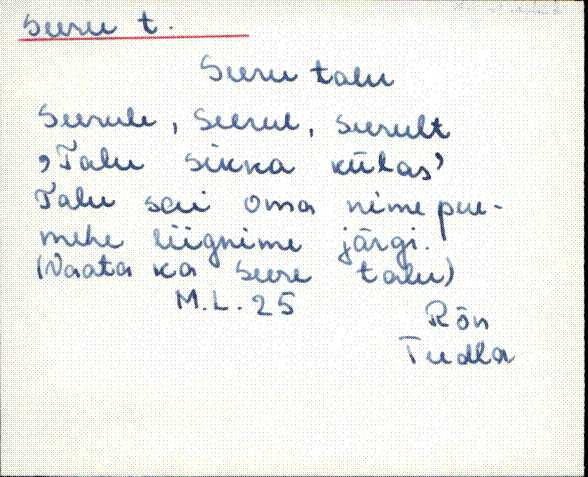 Suru t.
Suru talu
Surule, Surul, surult
,Talu Sikka külas'
Talu sai oma nime pere-
mehe liignime järgi.
(Vaata ka Sure talu)
M.L. 25
Rõn
Tudla